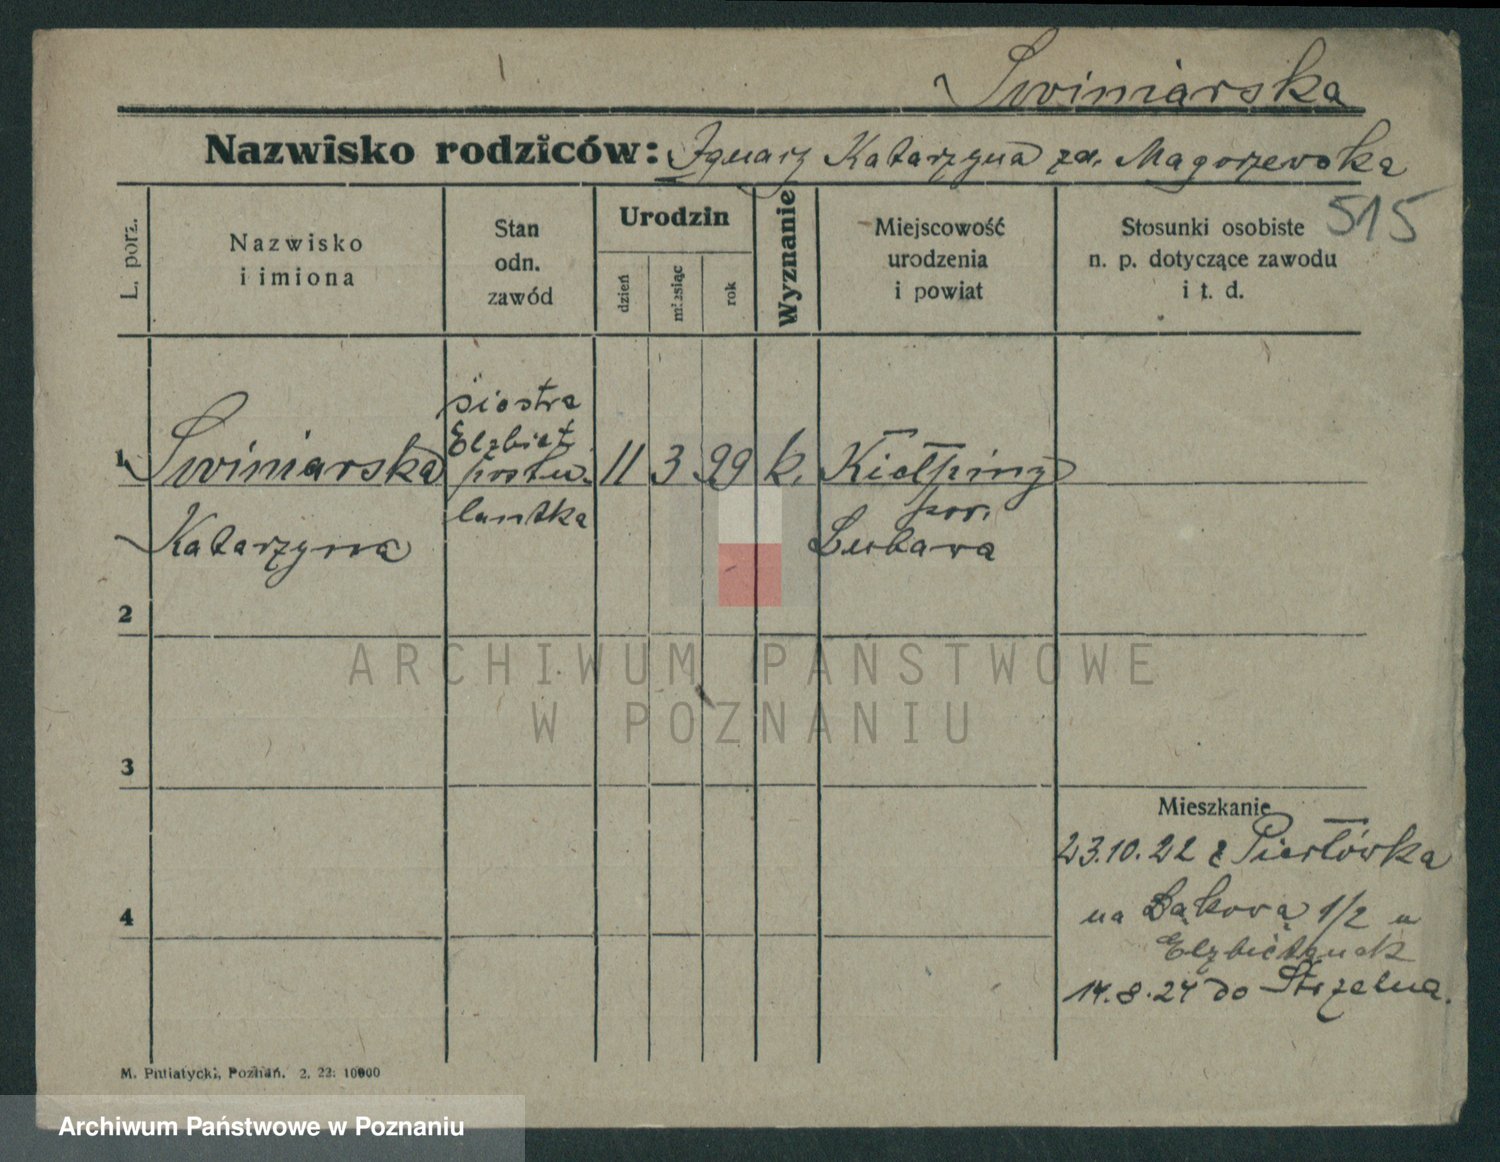 Swiniarska
Nazwisko rodziców: Ignacy Katarzyna zd. Magorzewska
515
L. porz.
Nazwisko
i imiona
Stan
odn.
zawód
Urodzin
dzień
miesiąc
rok
Wyznanie
Miejscowość
urodzenia
i powiat
Stosunki osobiste
n. p. dotyczące zawodu
i t. d.
1 Swiniarska
Katarzyna
siostra
Elzbiet.
postu-
lantka
11 3 99 k.
Kiełpiny
pow.
Lubawa
2
3
4
Mieszkanie
23.10.22 z
na Łąkową 1/2 u
Elzbietanek
14.8.24 do Strzelna.
M. Putiatycki, Poznań. 2. 22. 10000
ARCHIWUM PAŃSTWOWE
W POZNANIU
Archiwum Państwowe w Poznaniu